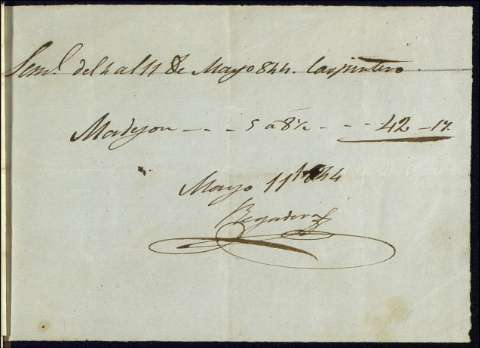 Semª. del 4 al 11 de Mayo 844. Carpintero.
Madejon - - - 5 a 8½ - - 42 - 17.
Mayo 11 de 844